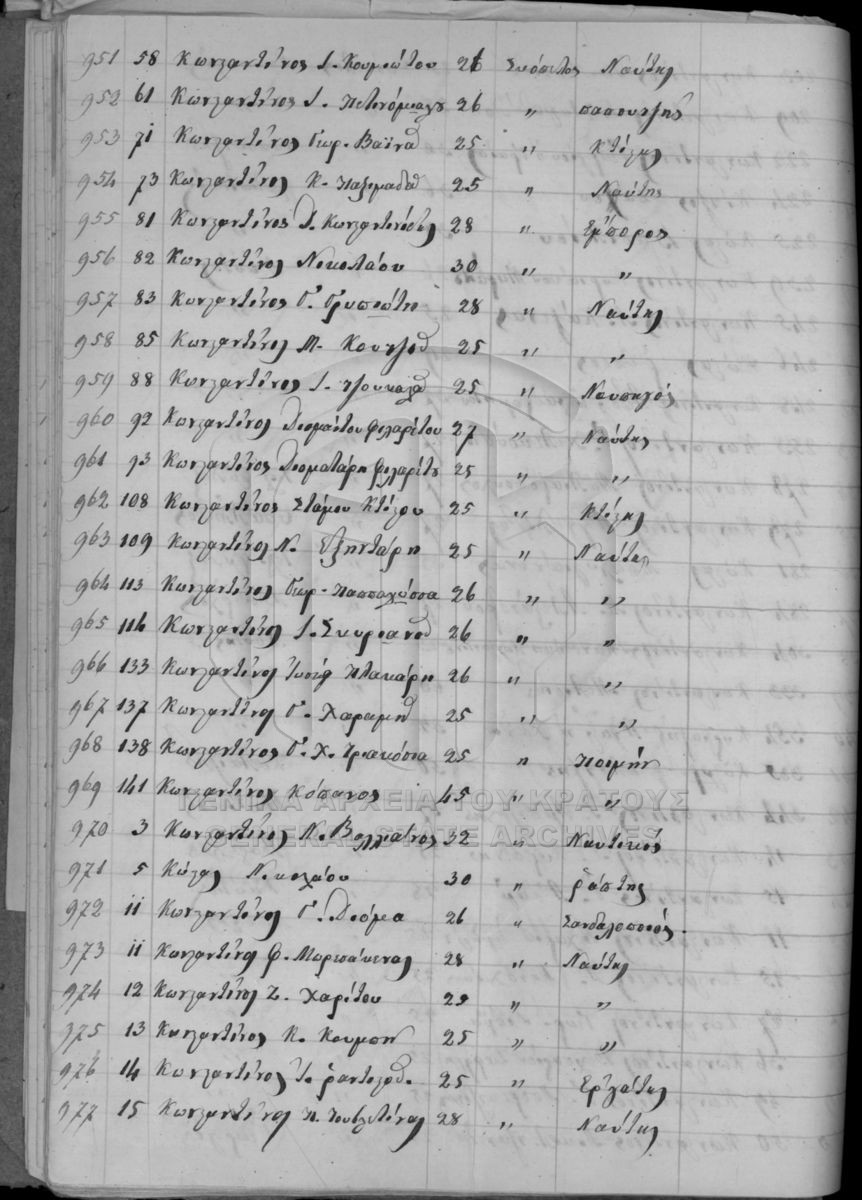 951 58 Κωνσταντίνος Ι. Κουμιώτου 26 Σκόπελος Ναύτης
952 61 Κωνσταντίνος Ι. 26 〃 παπουτζής
953 71 Κωνσταντίνος Γεωρ. Βαϊνά 25 〃 Κτίστης
954 73 Κωνσταντίνος Κ. Παξιμαδά 25 〃 Ναύτης
955 81 Κωνσταντίνος Δ. Κωνσταντινίδης 28 〃 Έμπορος
956 82 Κωνσταντίνος Νικολάου 30 〃 〃
957 83 Κωνσταντίνος Γ. Γρυπιώτη 28 〃 Ναύτης
958 85 Κωνσταντίνος Μ. Κουτζού 25 〃 〃
959 88 Κωνσταντίνος Ι. Τζουκαλά 25 〃 Ναυπηγός
960 92 Κωνσταντίνος Διομαίτου Φιλαρέτου 27 〃 Ναύτης
961 93 Κωνσταντίνος Διοματάρη Φιλαρέτου 25 〃 〃
962 108 Κωνσταντίνος Στάμου Κτίστου 25 〃 Κτίστης
963 109 Κωνσταντίνος Ν. Εξηντάρη 25 〃 Ναύτης
964 113 Κωνσταντίνος Γεωρ. 26 〃 〃
965 116 Κωνσταντίνος Ι. Σκυριανού 26 〃 〃
966 133 Κωνσταντίνος Ιωσήφ Πλακάρη 26 〃 〃
967 137 Κωνσταντίνος Γ. Χαραμή 25 〃 〃
968 138 Κωνσταντίνος Γ. Χ. Τριακόσια 25 〃 Ποιμήν
969 141 Κωνσταντίνος Κόπανος 45 〃 〃
ΓΕΝΙΚΑ ΑΡΧΕΙΑ ΤΟΥ ΚΡΑΤΟΥΣ
GENERAL STATE ARCHIVES
970 3 Κωνσταντίνος Ν. Βαλλιάνος 32 〃 Ναυτικός
971 5 Κώστας Νικολάου 30 〃 ράπτης
972 11 Κωνσταντίνος Γ. Διόμα 26 〃 Σανδαλοποιός.
973 11 Κωνσταντίνος Φ. 28 〃 Ναύτης
974 12 Κωνσταντίνος Ζ. Χαρίτου 29 〃 〃
975 13 Κωνσταντίνος Κ. Κουμπή 25 〃 〃
976 14 Κωνσταντίνος 25 〃 Εργάτης
977 15 Κωνσταντίνος Π. 28 〃 Ναύτης